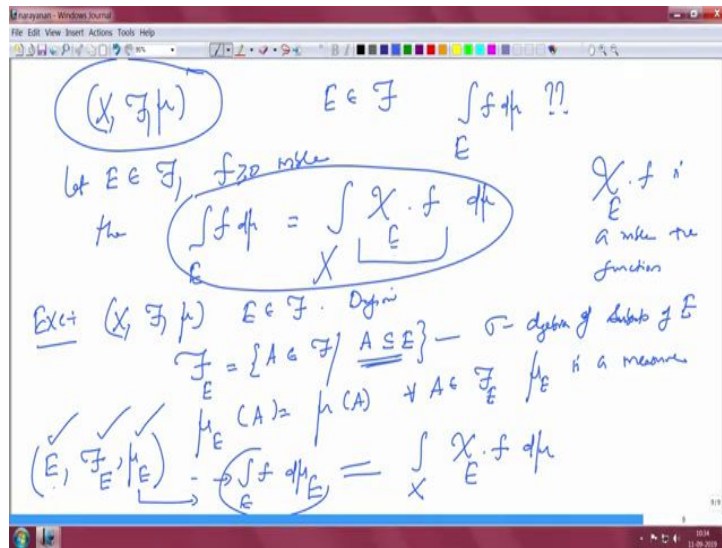 narayanan - Windows Journal
File Edit View Insert Actions Tools Help
(X, ℱ, μ) E ∈ ℱ ∫_E f dμ ??
let E ∈ ℱ, f≥0 mble
the ∫_E f dμ = ∫_X χ_E · f dμ
χ_E · f is
a mble +ve
function
Exc÷ (X, ℱ, μ) E ∈ ℱ. Define
ℱ_E = {A ∈ ℱ / A ⊆ E} — σ- algebra of subsets of E
μ_E (A) = μ (A) ∀ A ∈ ℱ_E μ_E is a measure
(E, ℱ_E, μ_E) → ∫_E f dμ_E = ∫_X χ_E · f dμ
9/9
9
10:34
11-09-2019